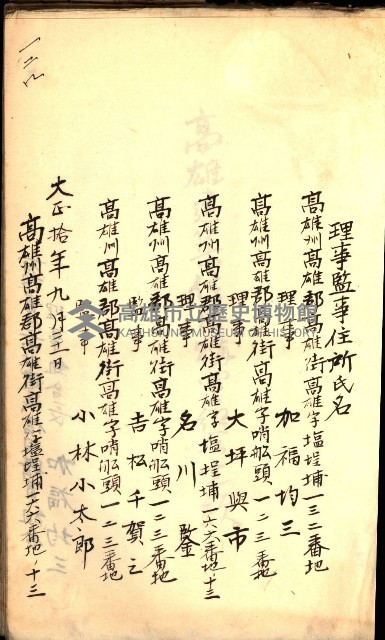 理事監事住所氏名
高雄州高雄郡高雄街高雄字塩埕埔一三二番地
理事 加福均三
高雄州高雄郡高雄街高雄字哨船頭一二三番地
理事 大坪與市
高雄州高雄郡高雄街高雄字塩埕埔一六六番地ノ十三
理事 名川
高雄州高雄郡高雄街高雄字哨船頭一二三番地
監事 吉松千賀之
高雄州高雄郡高雄街高雄字哨船頭一二三番地
監事 小林小太郎
大正拾年九月三十一日
高雄州高雄郡高雄街高雄字塩埕埔一六六番地ノ十三
高雄市立歷史博物館
KAOHSIUNG MUSEUM OF HISTORY